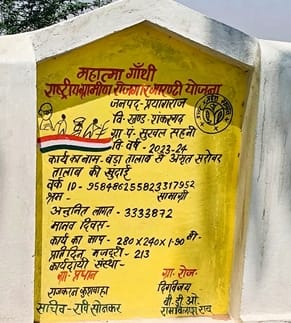 महात्मा गाँधी
राष्ट्रीय ग्रामीण रोजगार गारण्टी योजना
जनपद-प्रयागराज
वि० खण्ड-शंकरगढ़
ग्रा० पं० सुरवल सहनी
वि० वर्ष-2023-24
कार्य का नाम-बड़ा तालाब से अमृत सरोवर
तालाब की खुदाई
वर्क ID-958486255823317952
श्रम- सामाग्री
अनुमनित लागत-3333872
मानव दिवस-
कार्य का माप-280×240×1.90 मी-
प्रति दिन मजदूरी-213
कार्यदायी संस्था-
ग्रा० प्रधान ग्रा० रोज०
राजकान कुशवाहा दिग्विजय
सचिव-रवि सोनकर बी० डी० ओ०
रामविलाश राय